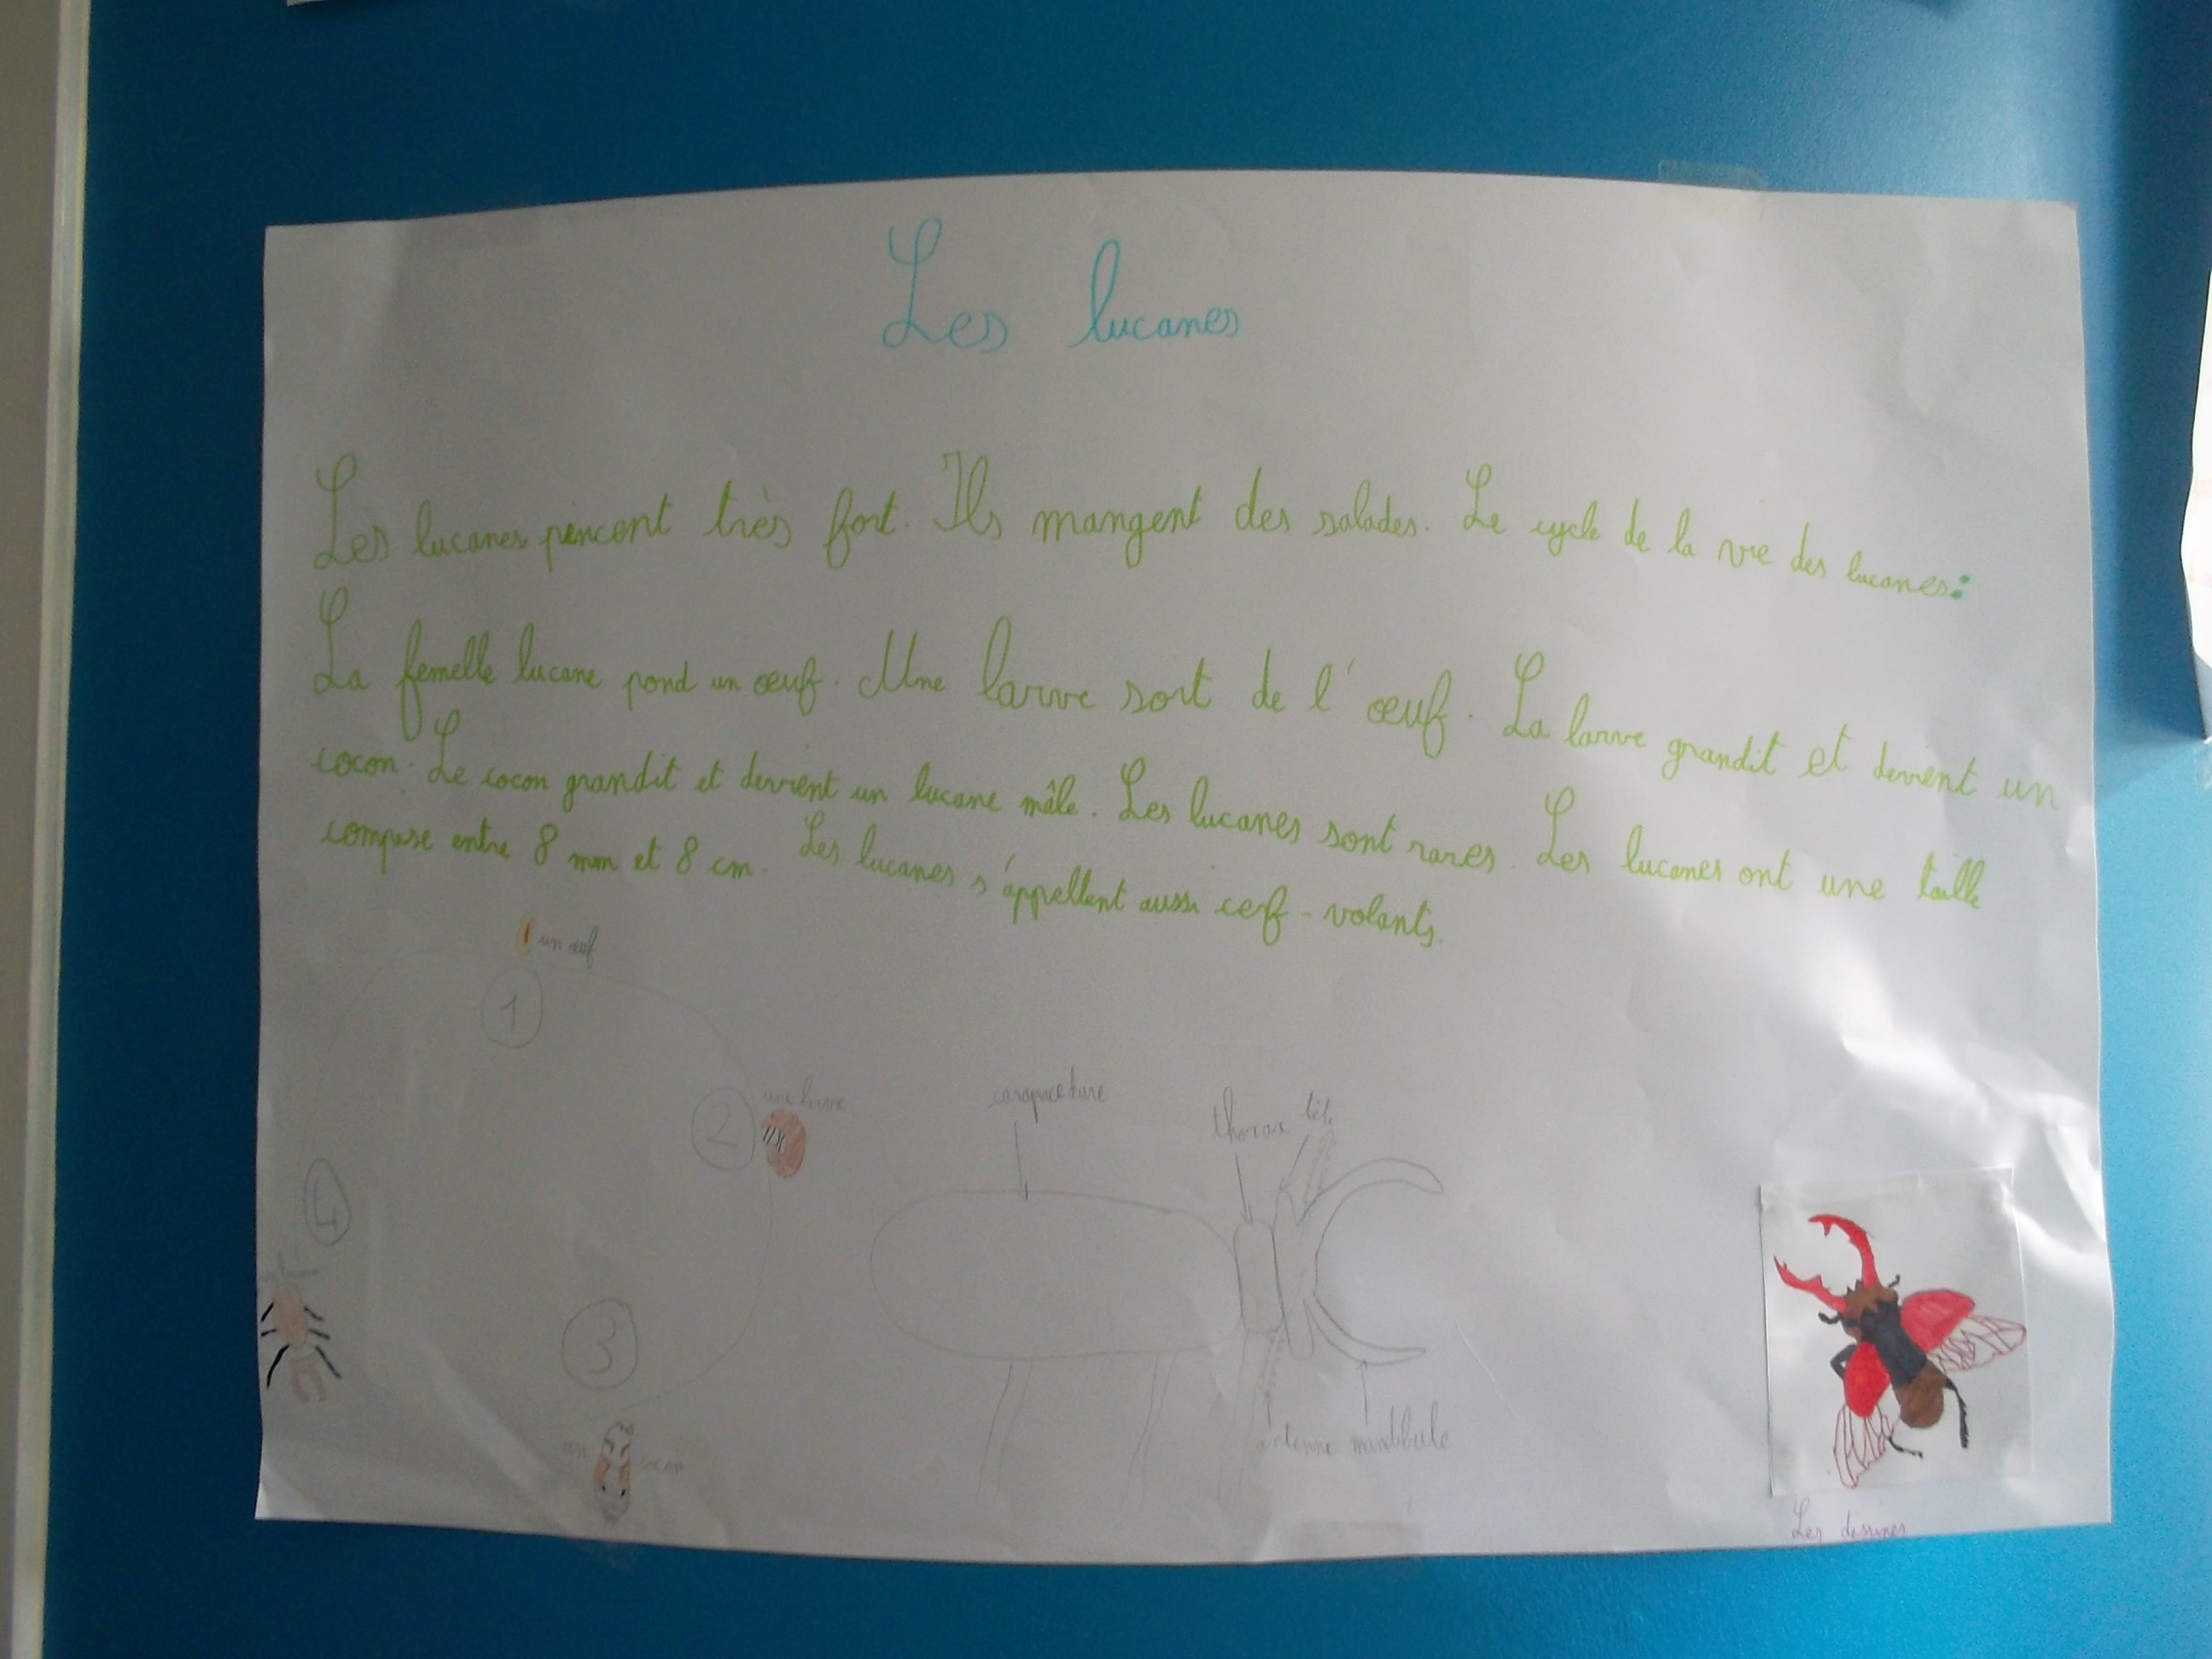 Les lucanes
Les lucanes pincent très fort. Ils mangent des salades. Le cycle de la vie des lucanes:
La femelle lucane pond un œuf. Une larve sort de l'œuf. La larve grandit et devient un
cocon. Le cocon grandit et devient un lucane mâle. Les lucanes sont rares. Les lucanes ont une taille
comprise entre 8 mm et 8 cm. Les lucanes s'appellent aussi cerf-volants.
un œuf
1
2
une larve
3
un cocon
4
thorax
tête
antenne
Les dessines